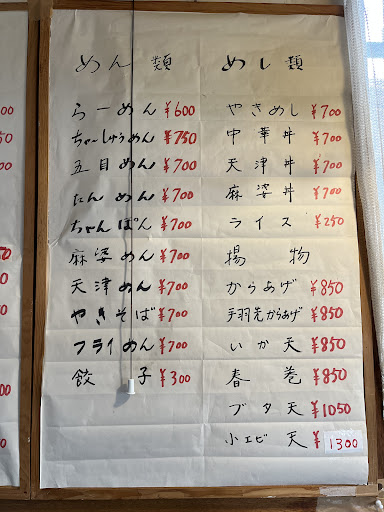 めん類
らーめん ¥600
ちゃーしゅうめん ¥750
五目めん ¥700
にんめん ¥700
ちゃんぽん ¥700
麻婆めん ¥700
天津めん ¥700
やきそば ¥700
フライめん ¥700
餃子 ¥300
めし類
やきめし ¥700
中華丼 ¥700
天津丼 ¥700
麻婆丼 ¥700
ライス ¥250
揚物
からあげ ¥850
手羽先からあげ ¥850
いか天 ¥850
春巻 ¥850
ブタ天 ¥1050
小エビ天 ¥1300